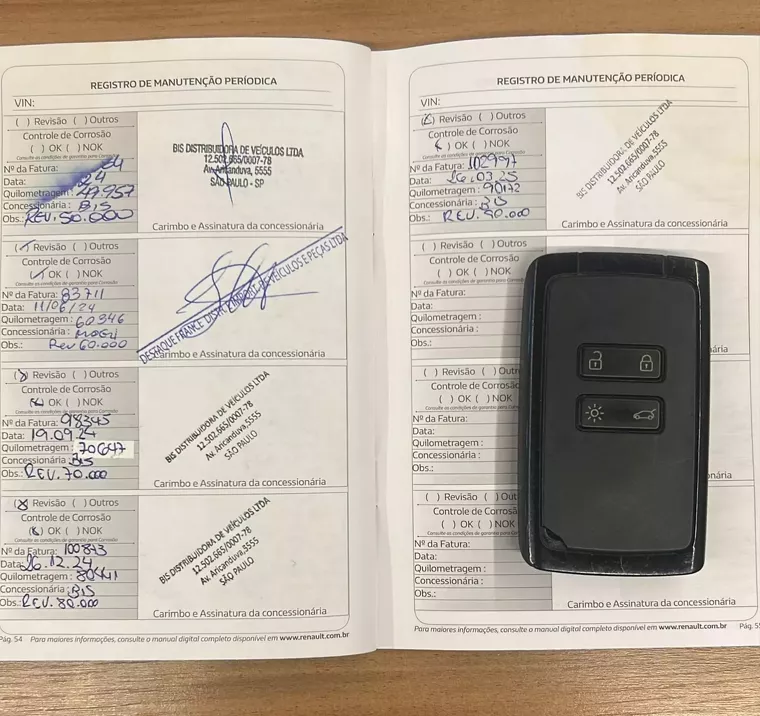 REGISTRO DE MANUTENÇÃO PERÍODICA
VIN:
( ) Revisão ( ) Outros
Controle de Corrosão
( ) OK ( ) NOK
Consulte as condições de garantia para Corrosão
Nº da Fatura:
Data: 24
Quilometragem: 47957
Concessionária: BIS
Obs.: REV. 50.000
BIS DISTRIBUIDORA DE VEÍCULOS LTDA
12.502.665/0007-78
Av. Aricanduva, 5555
SÃO PAULO - SP
Carimbo e Assinatura da concessionária
( ) Revisão ( ) Outros
Controle de Corrosão
( ) OK ( ) NOK
Consulte as condições de garantia para Corrosão
Nº da Fatura: 83711
Data: 11/06/24
Quilometragem: 60346
Concessionária: MOGI
Obs.: Rev 60.000
DESTAQUE FRANCE DISTR. E IMPORT. DE VEÍCULOS E PEÇAS LTDA
Carimbo e Assinatura da concessionária
(X) Revisão ( ) Outros
Controle de Corrosão
(X) OK ( ) NOK
Consulte as condições de garantia para Corrosão
Nº da Fatura: 98345
Data: 19.09.24
Quilometragem: 70647
Concessionária: BIS
Obs.: REV. 70.000
BIS DISTRIBUIDORA DE VEÍCULOS LTDA
12.502.665/0007-78
Av. Aricanduva, 5555
SÃO PAULO
Carimbo e Assinatura da concessionária
(X) Revisão ( ) Outros
Controle de Corrosão
(X) OK ( ) NOK
Consulte as condições de garantia para Corrosão
Nº da Fatura: 100843
Data: 26.12.24
Quilometragem: 80441
Concessionária: BIS
Obs.: REV. 80.000
BIS DISTRIBUIDORA DE VEÍCULOS LTDA
12.502.665/0007-78
Av. Aricanduva, 5555
SÃO PAULO
Carimbo e Assinatura da concessionária
Pág. 54 Para maiores informações, consulte o manual digital completo disponível em www.renault.com.br
REGISTRO DE MANUTENÇÃO PERÍODICA
VIN:
(X) Revisão ( ) Outros
Controle de Corrosão
( ) OK ( ) NOK
Consulte as condições de garantia para Corrosão
Nº da Fatura: 102997
Data: 26.03.25
Quilometragem: 90172
Concessionária: BIS
Obs.: REV. 90.000
BIS DISTRIBUIDORA DE VEÍCULOS LTDA
12.502.665/0007-78
Av. Aricanduva, 5555
SÃO PAULO
Carimbo e Assinatura da concessionária
( ) Revisão ( ) Outros
Controle de Corrosão
( ) OK ( ) NOK
Consulte as condições de garantia para
Nº da Fatura:
Data:
Quilometragem :
Concessionária :
Obs.:
ária
( ) Revisão ( ) Outr
Controle de Corrosão
( ) OK ( ) NOK
Consulte as condições de garantia para
Nº da Fatura:
Data:
Quilometragem :
Concessionária :
Obs.:
nária
( ) Revisão ( ) Out
Controle de Corros
( ) OK ( ) NOK
Consulte as condições de garantia para
Nº da Fatura:
Data:
Quilometragem :
Concessionária :
Obs.:
Carimbo e Assinatura da concessionária
Para maiores informações, consulte o manual digital completo disponível em www.renault.com.br Pág. 55